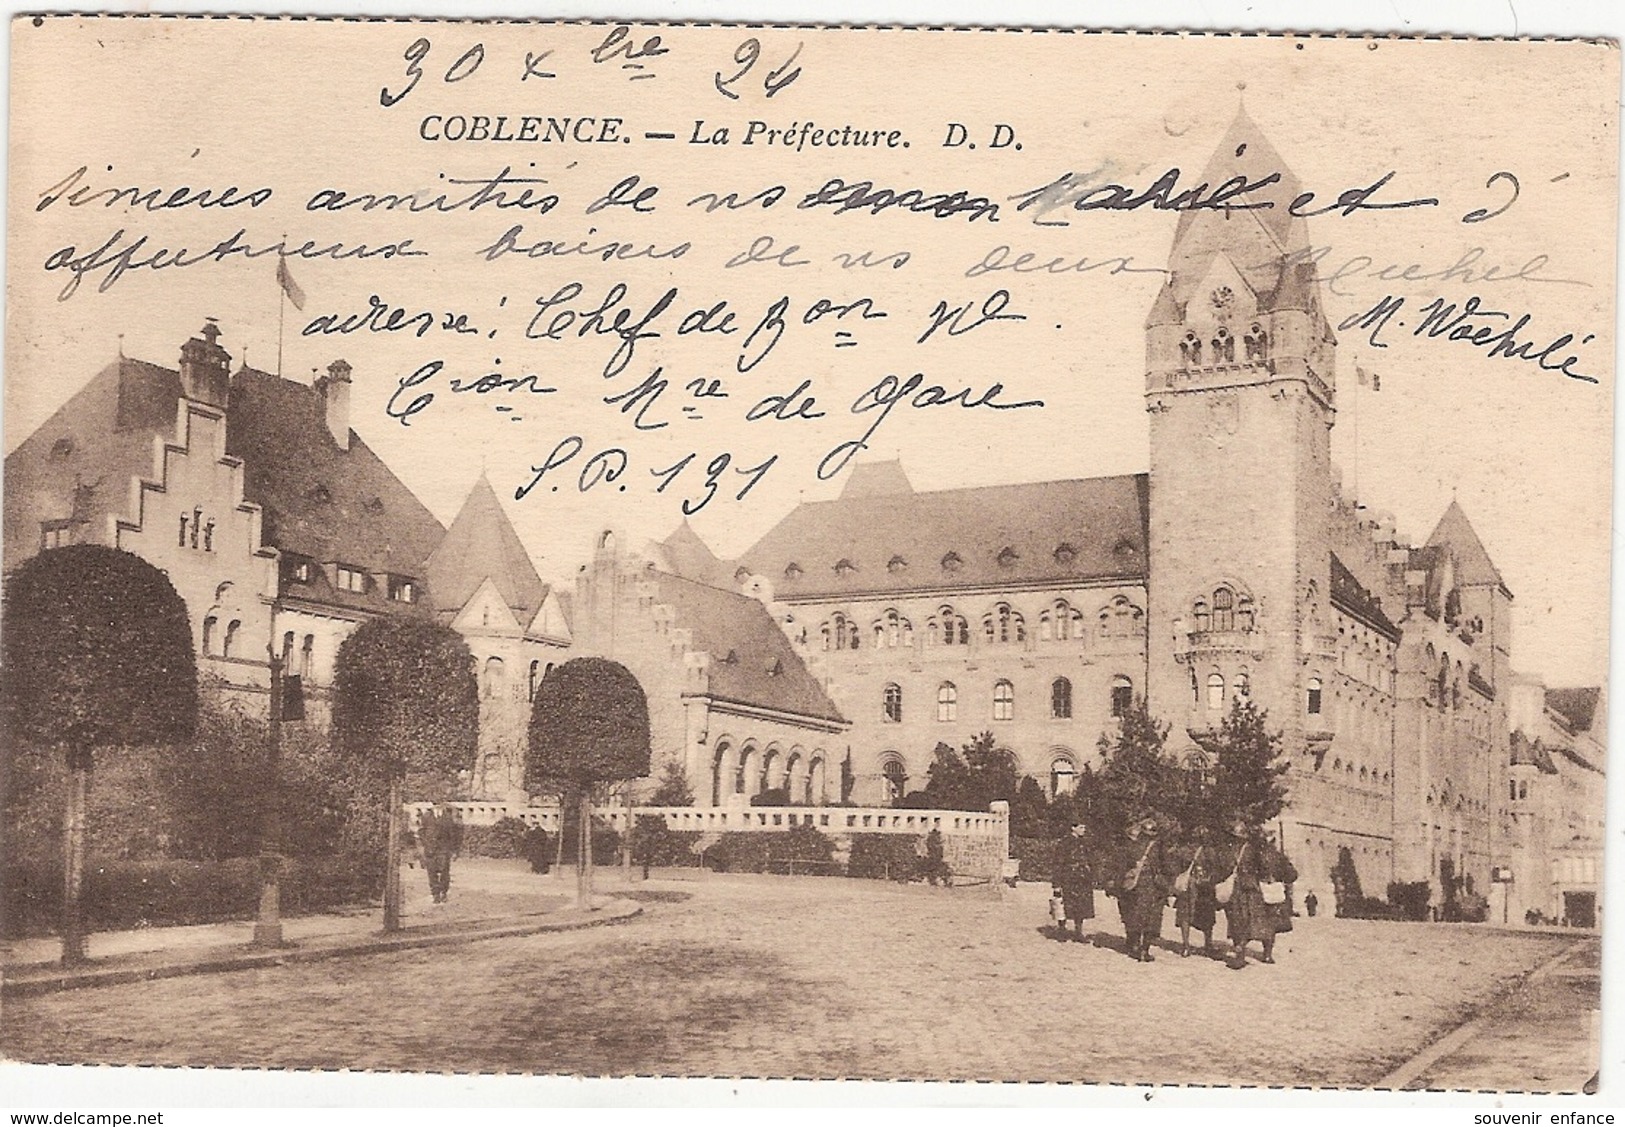 30 xbre 24
COBLENCE. — La Préfecture. D. D.
sincères amitiés de ns et d'
affectueux baisers de ns deux Michel
adresse : Chef de Bon Pl. M. Woehrlé
Cion Mre de Gare
S.P. 131
www.delcampe.net
souvenir enfance